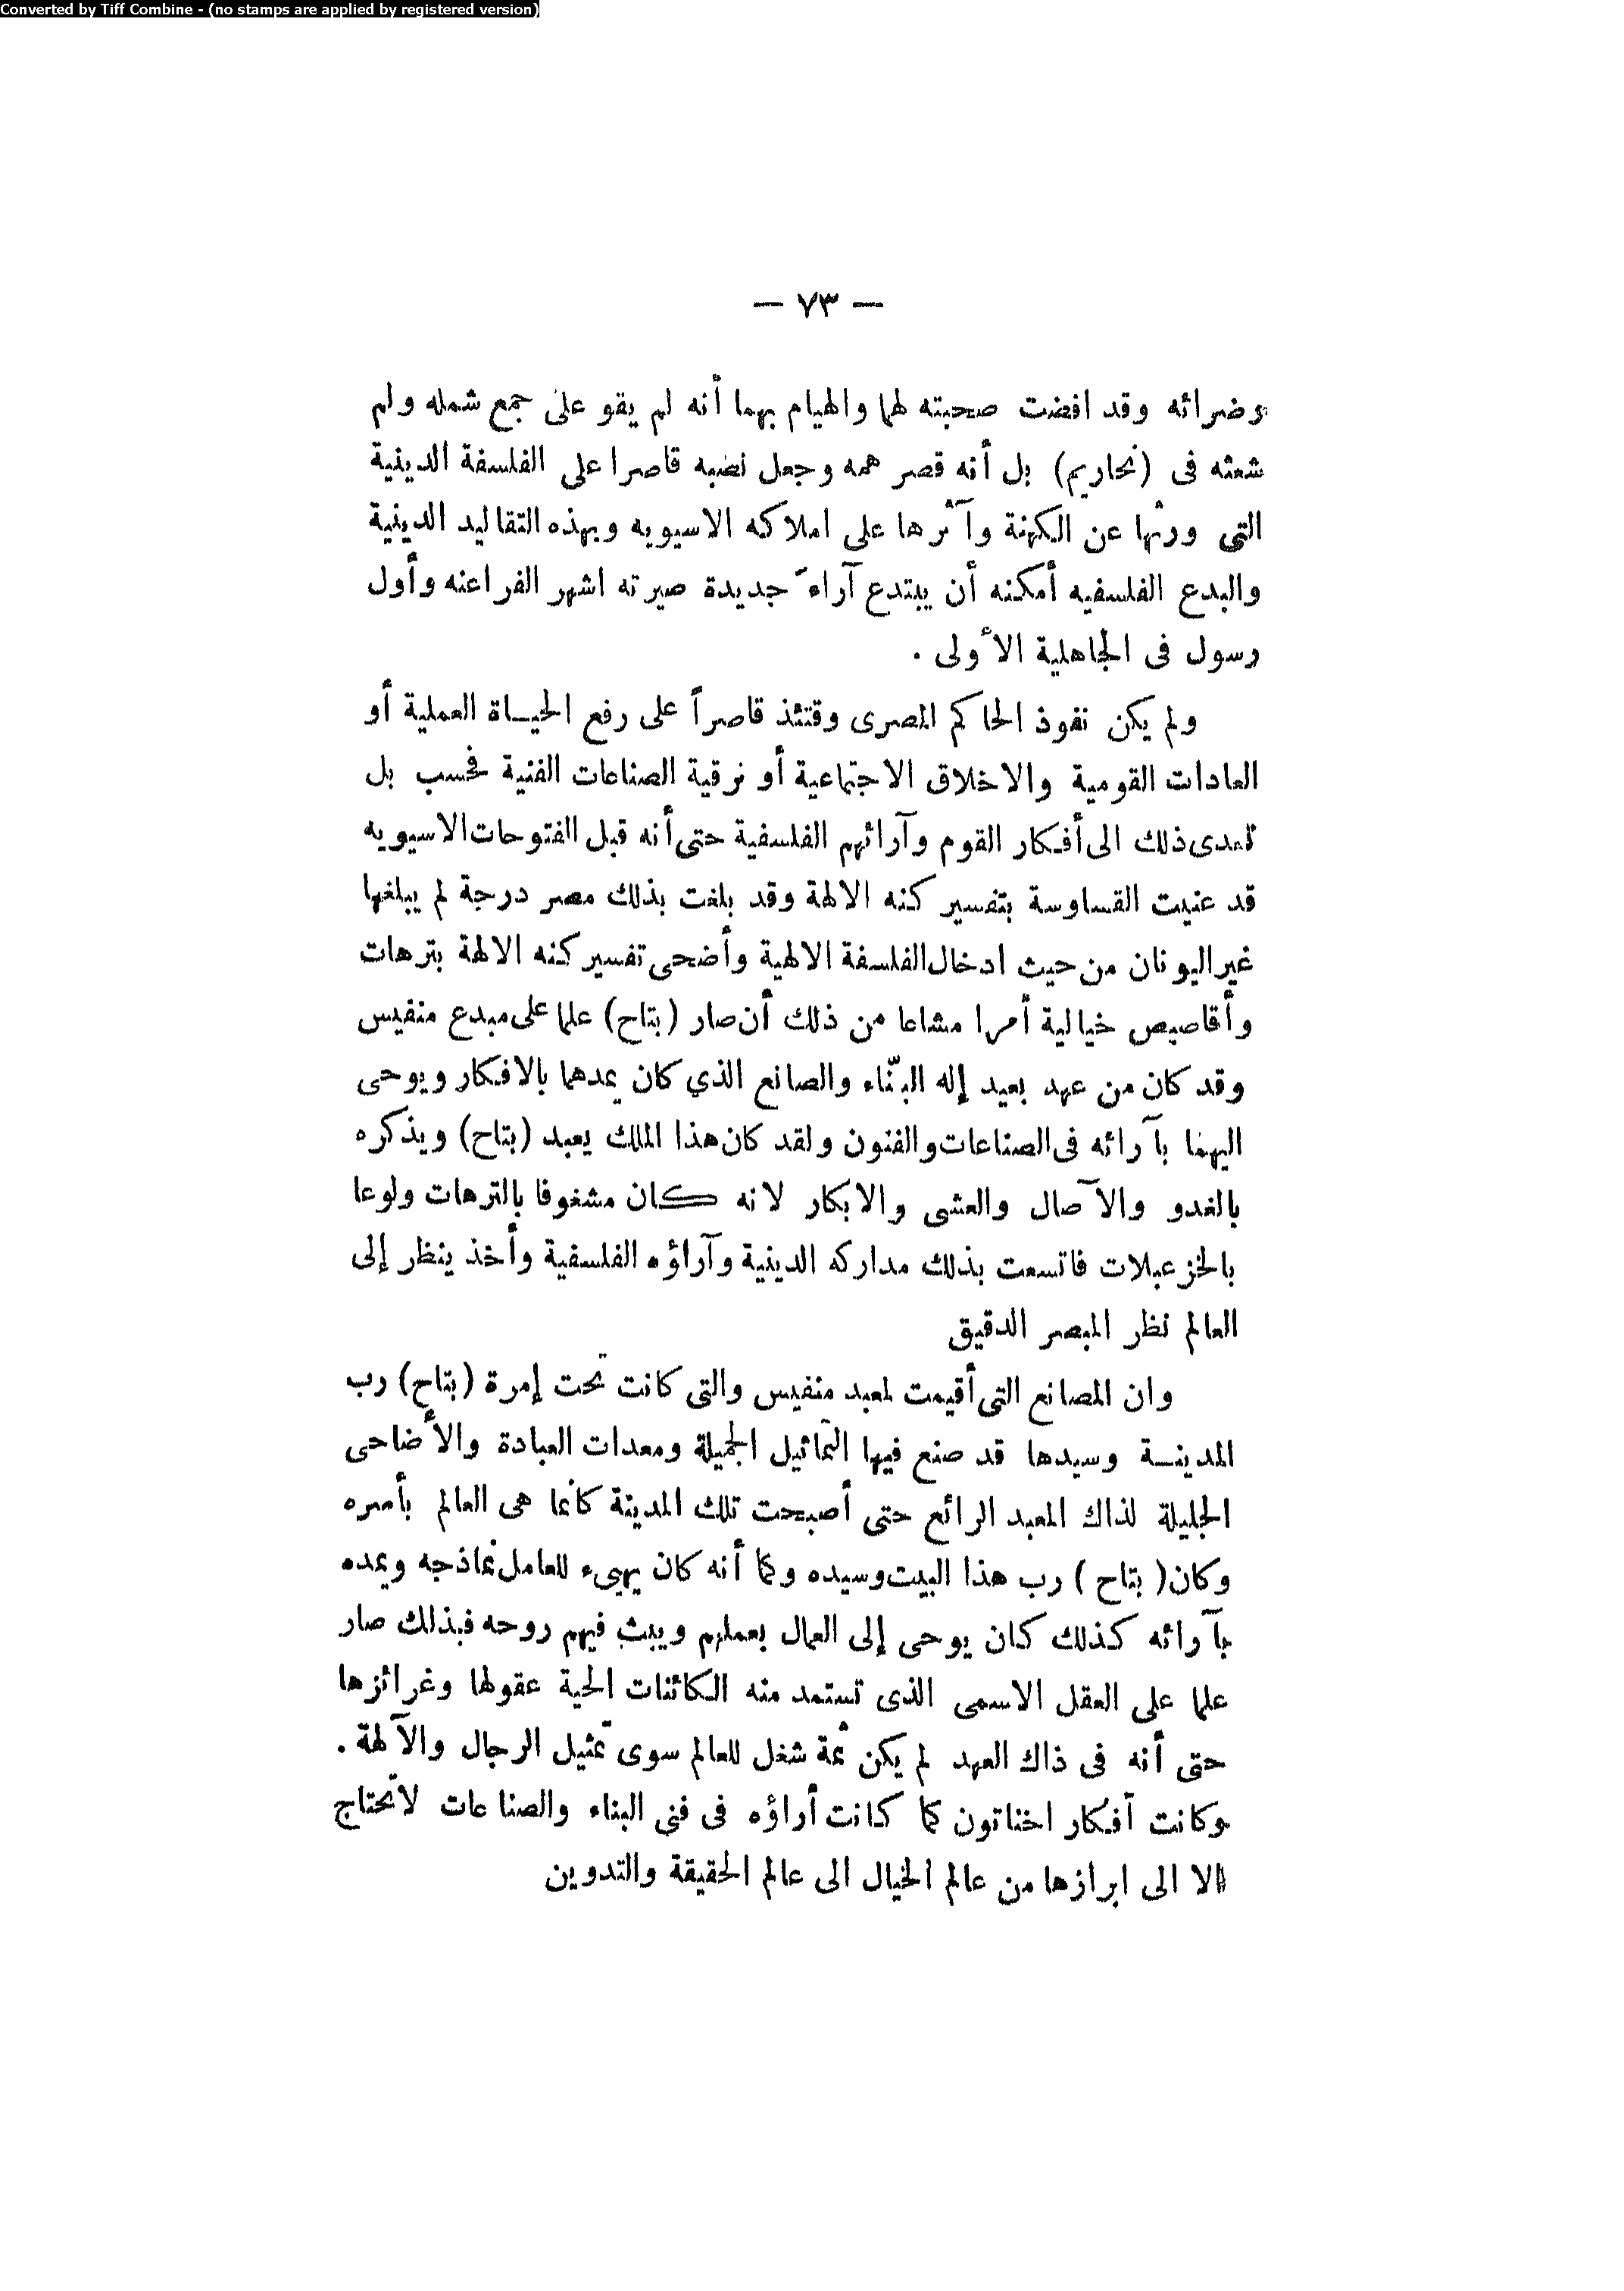 Converted by Tiff Combine - (no stamps are applied by registered version)
— ٧٣ —
وضرائه وقد افضت صحبته لهما والهيام بهما أنه لم يقو على جمع شمله ولم
شعثه فى (نحاريم) بل أنه قصر همه وجعل نضبه قاصرا على الفلسفة الدينية
التى ورثها عن الكهنة وآثرها على املاكه الاسيويه وبهذه التقاليد الدينية
والبدع الفلسفيه أمكنه أن يبتدع آراءً جديدة صيرته اشهر الفراعنه وأول
رسول فى الجاهلية الأولى .
ولم يكن نفوذ الحاكم المصرى وقتئذ قاصراً على رفع الحياة العملية أو
العادات القومية والاخلاق الاجتماعية أو ترقية الصناعات الفنية فحسب بل
تعدى ذلك الى أفكار القوم وآرائهم الفلسفية حتى أنه قبل الفتوحات الاسيويه
قد عنيت القساوسة بتفسير كنه الالهة وقد بلغت بذلك مصر درجة لم يبلغها
غير اليونان من حيث ادخال الفلسفة الالهية وأضحى تفسير كنه الالهة بترهات
وأقاصيص خيالية أمرا مشاعا من ذلك أن صار (بتاح) علما على مبدع منفيس
وقد كان من عهد بعيد إله البنّاء والصانع الذي كان يمدهما بالافكار ويوحى
اليهما بآرائه فى الصناعات والفنون ولقد كان هذا الملك يعبد (بتاح) ويذكره
بالغدو والآصال والعشى والابكار لانه كان مشغوفا بالترهات ولوعا
بالخزعبلات فاتسعت بذلك مداركه الدينية وآراؤه الفلسفية وأخذ ينظر إلى
العالم نظر المبصر الدقيق
وان المصانع التى أقيمت لمعبد منفيس والتى كانت تحت إمرة (بتاح) رب
المدينة وسيدها قد صنع فيها التماثيل الجميلة ومعدات العبادة والأضاحى
الجليلة لذاك المعبد الرائع حتى أصبحت تلك المدينة كأنما هى العالم بأسره
وكان ( بتاح ) رب هذا البيت وسيده وكما أنه كان يهيىء للعامل نماذجه ويمده
بآرائه كذلك كان يوحى إلى العمال بعملهم ويبث فيهم روحه فبذلك صار
علما على العقل الاسمى الذى تستمد منه الكائنات الحية عقولها وغرائزها
حتى أنه فى ذاك العهد لم يكن ثمة شغل للعالم سوى تمثيل الرجال والآلهة .
وكانت أفكار اخناتون كما كانت أراؤه فى فنى البناء والصناعات لاتحتاج
الا الى ابرازها من عالم الخيال الى عالم الحقيقة والتدوين